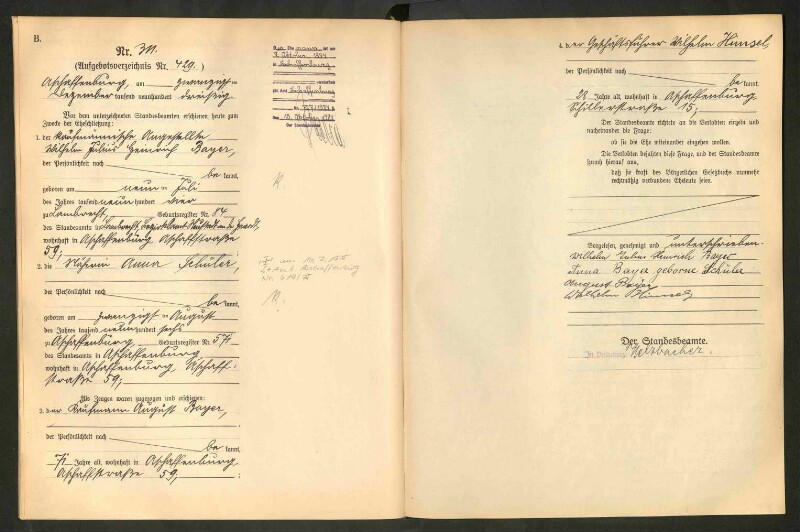 B.
Nr. 311.
(Aufgebotsverzeichnis Nr. 429.)
Aschaffenburg, am zwanzigsten
Dezember tausend neunhundert dreißig.
Vor dem unterzeichneten Standesbeamten erschienen heute zum
Zwecke der Eheschließung:
1. der kaufmännische Angestellte
Wilhelm Julius Heinrich Bayer,
der Persönlichkeit nach
be kannt,
geboren am neunten Juli
des Jahres tausend neun hundert vier
zu Lambrecht, Geburtsregister Nr. 84
des Standesamts in Lambrecht, Bezirksamt Neustadt a. d. Haardt,
wohnhaft in Aschaffenburg Aschaffstraße
59;
2. die Näherin Anna Schüler,
der Persönlichkeit nach
be kannt,
geboren am zwanzigsten August
des Jahres tausend neun hundert sechs
zu Aschaffenburg, Geburtsregister Nr. 571
des Standesamts in Aschaffenburg,
wohnhaft in Aschaffenburg, Aschaff-
straße 59;
Als Zeugen waren zugezogen und erschienen:
3. der Kaufmann August Bayer,
der Persönlichkeit nach
be kannt,
71 Jahre alt, wohnhaft in Aschaffenburg
Aschaffstraße 59;
Aschaffenburg
Der Standesbeamte
am
Aschaffenburg
4. der Geschäftsführer Wilhelm Hunsel
der Persönlichkeit nach
be kannt,
28 Jahre alt, wohnhaft in Aschaffenburg
Schillerstraße 15;
Der Standesbeamte richtete an die Verlobten einzeln und
nacheinander die Frage:
ob sie die Ehe miteinander eingehen wollen.
Die Verlobten bejahten diese Frage, und der Standesbeamte
sprach hierauf aus,
daß sie kraft des Bürgerlichen Gesetzbuchs nunmehr
rechtmäßig verbundene Eheleute seien.
Vorgelesen, genehmigt und unterschrieben.
Wilhelm Julius Heinrich Bayer
Anna Bayer geborene Schüler
August Bayer
Wilhelm Hunsel
Der Standesbeamte.
In Vertretung: